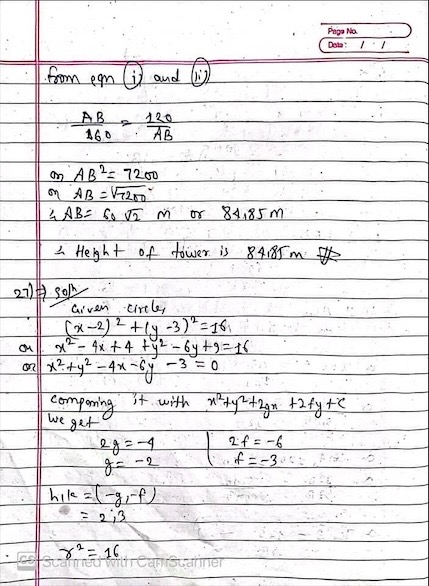 Page No.
Date: / /
from eqn (i) and (ii)
AB/160 = 120/AB
or AB² = 7200
or AB = √7200
∴ AB = 60 √2 m or 84.85 m
∴ Height of tower is 84.85 m
27) ⇒ solⁿ
Given circle,
(x-2)² + (y-3)² = 16
or x² - 4x + 4 + y² - 6y + 9 = 16
or x² + y² - 4x - 6y - 3 = 0
Comparing it with x² + y² + 2gx + 2fy + c
We get
2g = -4 | 2f = -6
g = -2 | f = -3
h,k = (-g, -f)
= 2,3
r² = 16
CS Scanned with CamScanner